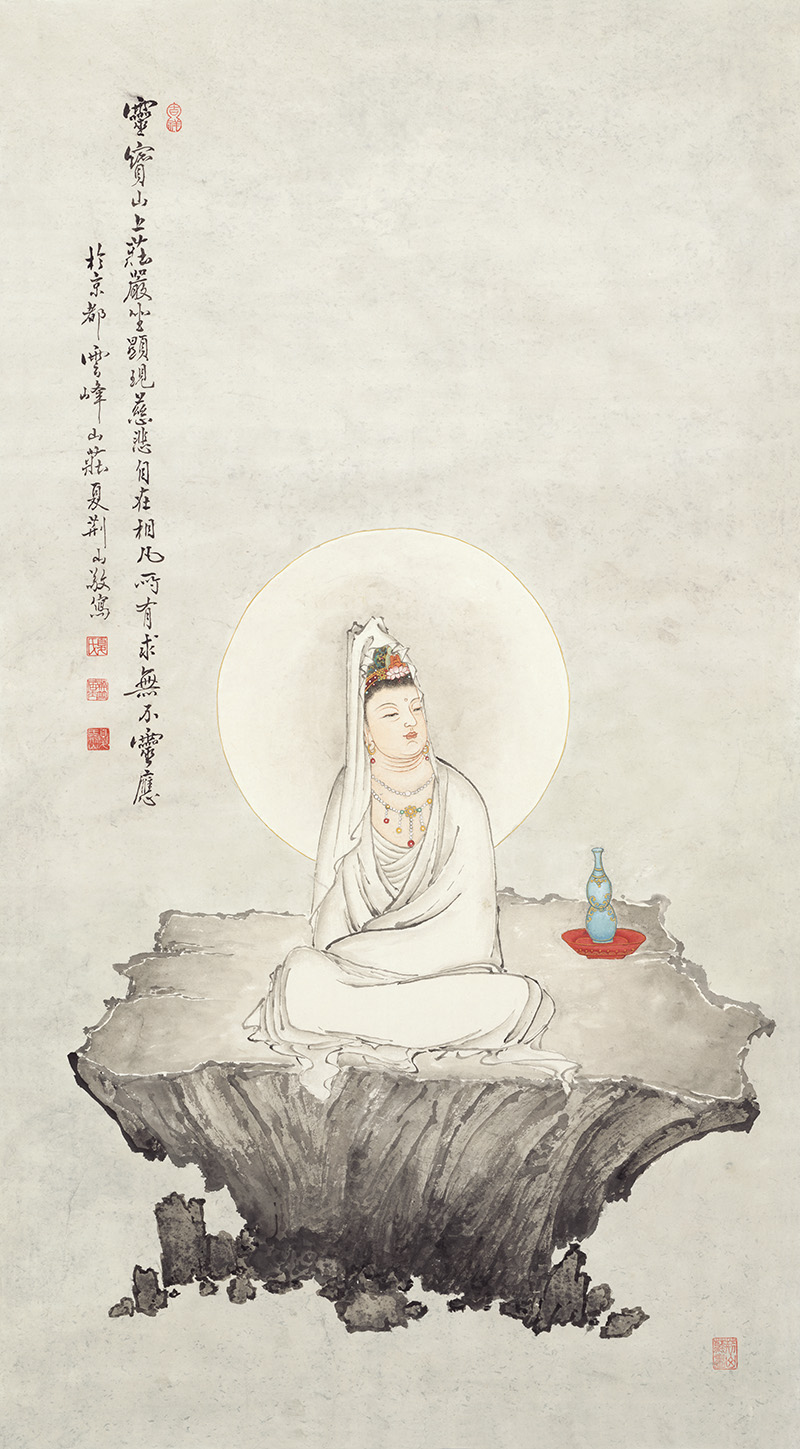 靈寶山上莊嚴坐顯現慈悲自在相凡所有求無不靈應
於京都雲峰山莊夏荆山敬寫